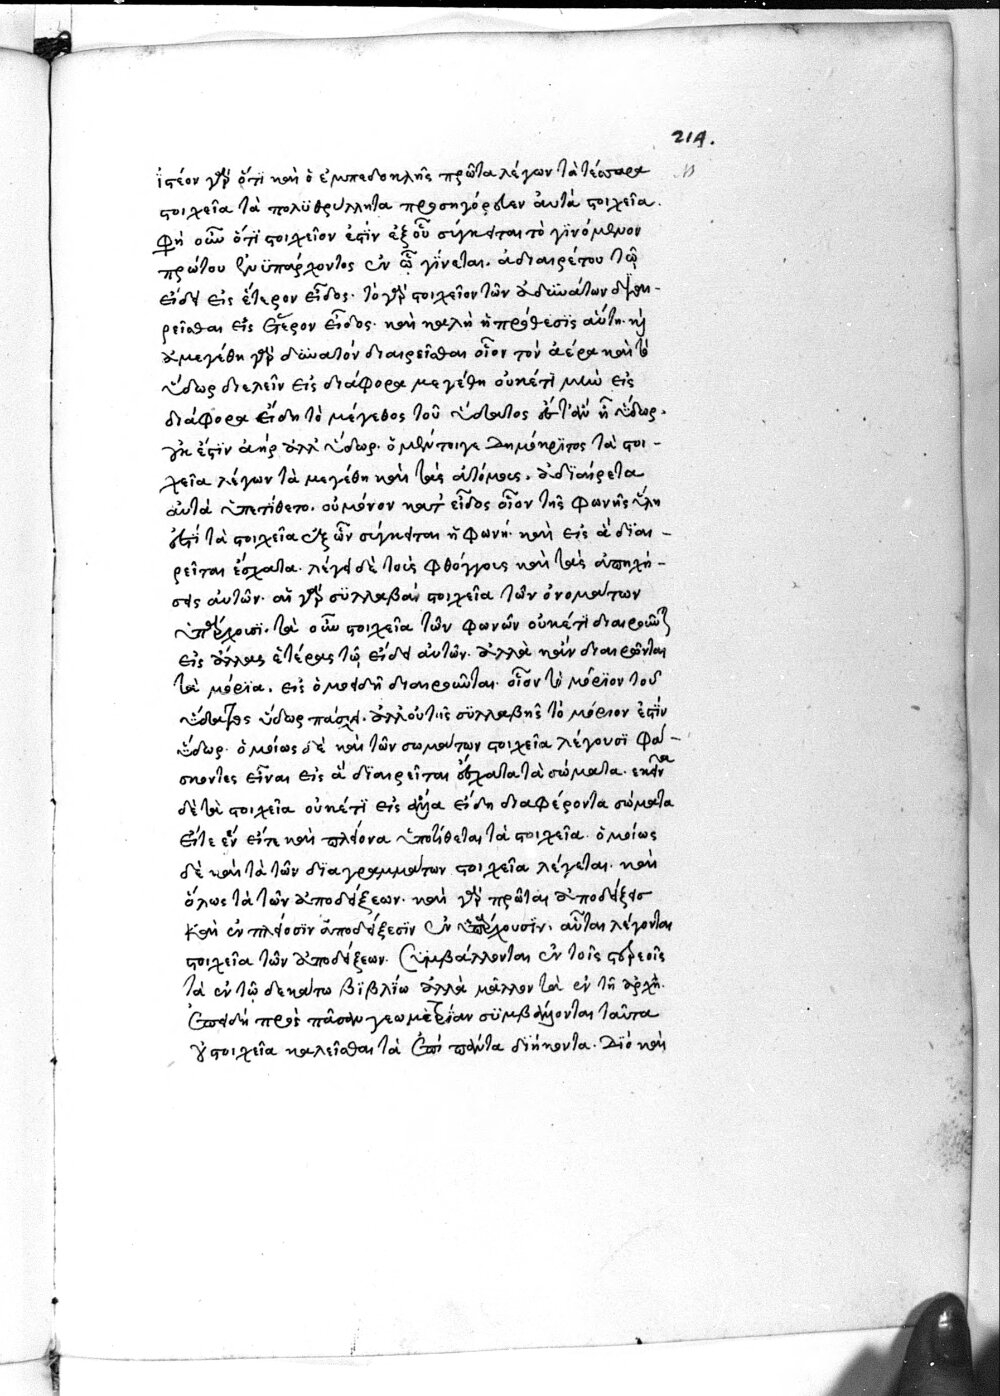 214.
ἰστέον γὰρ ὅτι καὶ ὁ ἐμπεδοκλῆς πρῶτα λέγων τὰ τέσσαρα
στοιχεῖα τὰ πολϋθρύλλητα προσηγόρευεν ἀυτὰ στοιχεῖα.
φησὶ οὖν ὅτι στοιχεῖον ἐστὶν ἐξ οὗ σύγκειται τὸ γϊνόμενον
πρώτου ἐνϋπάρχοντος ἐν ᾧ γΐνεται. ἀδιαιρέτου τῷ
εἴδει εἰς ἕτερον εἶδος. τὸ γὰρ στοιχεῖον τῶν ἀδυνάτων διαι-
ρεῖσθαι εἰς ἕτερον εἶδος. καὶ καλὴ ἡ πρόθεσϊς αὕτη.
μεγέθη γὰρ δυνατὸν διαιρεῖσθαι οἷον τὸν ἀέρα καὶ τὸ
ὕδωρ διελεῖν εἰς διάφορα μεγέθη οὐκέτι μὴν εἰς
διάφορα εἴδη τὸ μέγεθος τοῦ ὕδατος ἢ ὕδωρ.
ἐστὶν ἀὴρ ἀλλ' ὕδωρ. ὁ μέντοιγε Δημόκρϊτος τὰ στοι-
χεῖα λέγων τὰ μεγέθη καὶ τὰς ἀτόμους. ἀδϊαίρετα
αὐτὰ ὑπετίθετο. οὐ μόνον κατ' εἶδος οἷον τῆς φωνῆς ὕλη
ἐστὶ τὰ στοιχεῖα ἐξ ὧν σύγκειται ἡ φωνή. καὶ εἰς ἃ δϊαι-
ρεῖται ἔσχατα. λέγει δὲ τοὺς φθόγγους καὶ τὰς ἀπηχή-
σεις αὐτῶν. αἱ γὰρ σϋλλαβαὶ στοιχεῖα τῶν ὀνομάτων
ὑπάρχουσϊ. τὰ οὖν στοιχεῖα τῶν φωνῶν οὐκέτι διαιροῦνται
εἰς ἄλλας ἑτέρας τῷ εἴδει αὐτῶν. ἀλλὰ κἂν διαιρῶνται
τὰ μόρϊα. εἰς ὁμοειδῆ διαιροῦνται. οἷον τὸ μόρϊον τοῦ
ὕδατος ὕδωρ ἀλλ' οὐ τῆς σϋλλαβῆς τὸ μόριον ἐστὶν
ὕδωρ. ὁμοίως δὲ καὶ τῶν σωμάτων στοιχεῖα λέγουσϊ φά-
σκοντες εἶναι εἰς ἃ δϊαιρεῖται ἔσχατα τὰ σώματα. ἐκεῖνα
δὲ τὰ στοιχεῖα οὐκέτϊ εἰς ἄλλα εἴδη διαφέροντα σώματα
εἴτε ἓν εἴτε καὶ πλείονα ὑποτίθεται τὰ στοιχεῖα. ὁμοίως
δὲ καὶ τὰ τῶν δϊαγραμμάτων στοιχεῖα λέγεται. καὶ
ὅλως τὰ τῶν ἀποδείξεων. καὶ γὰρ πρῶται ἀποδείξεις
καὶ ἐν πλείοσϊν ἀποδείξεσϊν ἐν ὑπάρχουσϊν. αὗται λέγονται
στοιχεῖα τῶν ἀποδείξεων. συμβάλλονται ἐν τοῖς στερεοῖς
τὰ ἐν τῷ δεκάτω βϊβλΐω ἀλλὰ μᾶλλον τὰ ἐν τῇ ἀρχῇ.
ἐπειδὴ πρὸς πᾶσαν γεωμετρίαν σϋμβάλλονται ταῦτα
στοιχεῖα καλεῖσθαι τὰ ἐπὶ πάντα δϊήκοντα. Διὸ καὶ